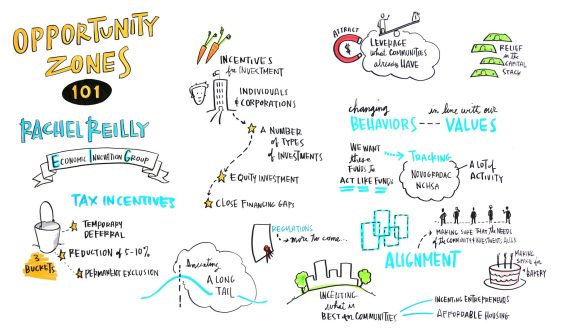 OPPORTUNITY
ZONES
101
RACHEL REILLY
ECONOMIC INNOVATION GROUP
TAX INCENTIVES
TEMPORARY
DEFERRAL
REDUCTION OF 5-10%
PERMANENT EXCLUSION
3
BUCKETS
INCENTIVES
for INVESTMENT
INDIVIDUALS
& CORPORATIONS
A NUMBER
OF TYPES
OF INVESTMENTS
EQUITY INVESTMENT
CLOSE FINANCING GAPS
A LONG
TAIL
REGULATIONS
more to come...
INCENTING
what is
BEST for COMMUNITIES
ATTRACT
$
LEVERAGE
what COMMUNITIES
already HAVE
RELIEF
in the
CAPITAL
STACK
changing
BEHAVIORS
in line with our
VALUES
WE WANT
these
FUNDS TO
ACT LIKE FUNDS
TRACKING
NOVOGRADAC
NCHSA
A LOT of
ACTIVITY
ALIGNMENT
MAKING SURE THAT the NEEDS
OF the COMMUNITY & INVESTMENTS ALIGN
MAKING
SPACE for
a BAKERY
INCENTING ENTREPRENEURS
AFFORDABLE HOUSING